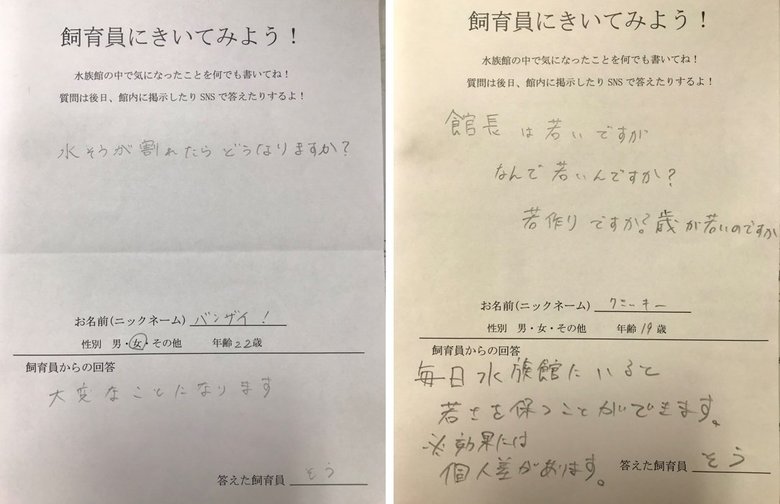 飼育員にきいてみよう！
水族館の中で気になったことを何でも書いてね！
質問は後日、館内に掲示したりSNSで答えたりするよ！
水そうが割れたらどうなりますか？
お名前(ニックネーム) バンザイ！
性別 男・女・その他 年齢22歳
飼育員からの回答
大変なことになります
答えた飼育員 そう
飼育員にきいてみよう！
水族館の中で気になったことを何でも書いてね！
質問は後日、館内に掲示したりSNSで答えたりするよ！
館長は若いですが
なんで若いんですか？
若作りですか？歳が若いのですか
お名前(ニックネーム) クミッキー
性別 男・女・その他 年齢19歳
飼育員からの回答
毎日水族館にいると
若さを保つことができます。
※効果には
個人差があります。
答えた飼育員 そう